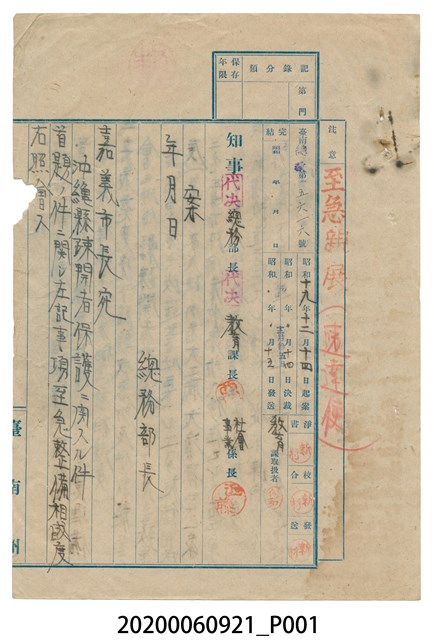 記錄分類
第 門
保存年限
注意
至急親展（速達便）
臺南總第五六一六號
昭和十九年十二月十四日起案
昭和 年 月十四日決裁
昭和 年 月十五日發送
完結 昭和 年 月 日
淨書
校合
發送
教育課取扱者
知事
代決
總務部長
代決
教育課長
社會事業係長
案
年月日
總務部長
嘉義市長宛
沖繩縣疎開者保護ニ關スル件
首題ノ件ニ關シ左記事項至急整備相成度
右照會ス
臺南州
20200060921_P001